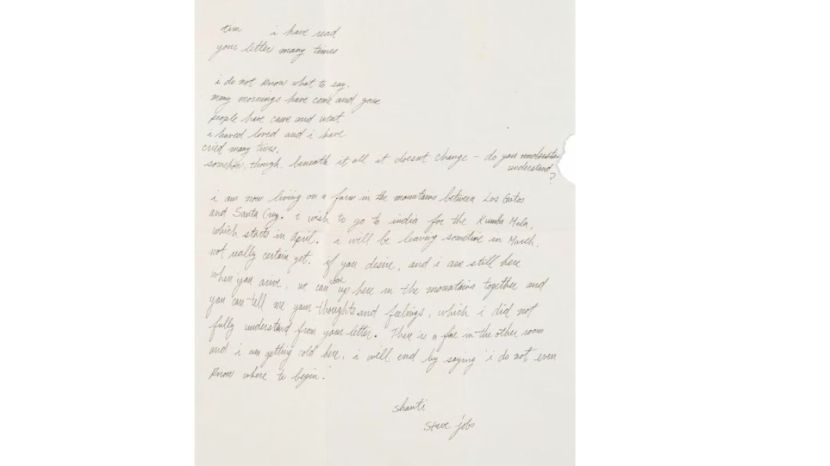 tim i have read
your letter many times
i do not know what to say.
many mornings have come and gone
people have came and went.
i haved loved and i have
cried many times.
somehow, though, beneath it all it doesnt change - do you understand
understand?
i am now living on a farm in the mountains between Los Gatos
and Santa Cruz. i wish to go to india for the Kumba Mela,
which starts in April. i will be leaving sometime in March,
not really certain yet. if you desire, and i am still here
when you arive, we can be up here in the mountains together and
you can tell me your thoughts and feelings, which i did not
fully understand from your letter. There is a fire in the other room
and i am getting cold here. i will end by saying 'i do not even
know where to begin.'
shanti
steve jobs